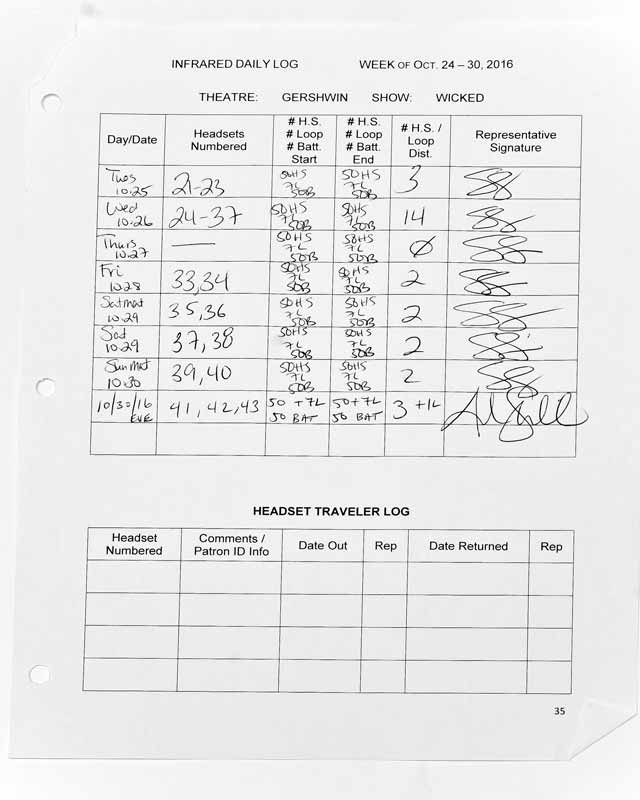 INFRARED DAILY LOG WEEK OF OCT. 24 – 30, 2016
THEATRE: GERSHWIN SHOW: WICKED
Day/Date Headsets Numbered # H.S. # Loop # Batt. Start # H.S. # Loop # Batt. End # H.S. / Loop Dist. Representative Signature
Tues 10.25 21-23 50HS 7L 50B 50HS 7L 50B 3
Wed 10.26 24-37 50HS 7L 50B 50HS 7L 50B 14
Thurs 10.27 — 50HS 7L 50B 50HS 7L 50B Ø
Fri 10.28 33,34 50HS 7L 50B 50HS 7L 50B 2
Sat Mat 10.29 35,36 50HS 7L 50B 50HS 7L 50B 2
Sat 10.29 37,38 50HS 7L 50B 50HS 7L 50B 2
Sun Mat 10.30 39,40 50HS 7L 50B 50HS 7L 50B 2
10/30/16 EVE 41,42,43 50 +7L 50 BAT 50+7L 50 BAT 3 +1L
HEADSET TRAVELER LOG
Headset Numbered Comments / Patron ID Info Date Out Rep Date Returned Rep
35